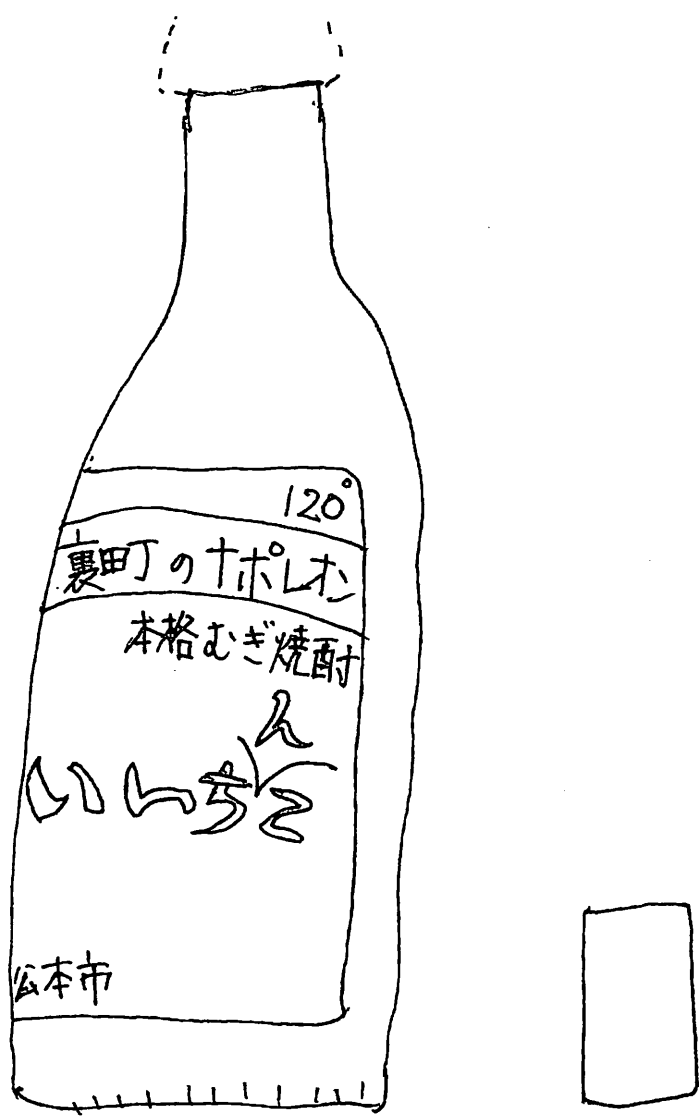 120°
裏町のナポレオン
本格むぎ焼酎
ん
いんちこ
松本市